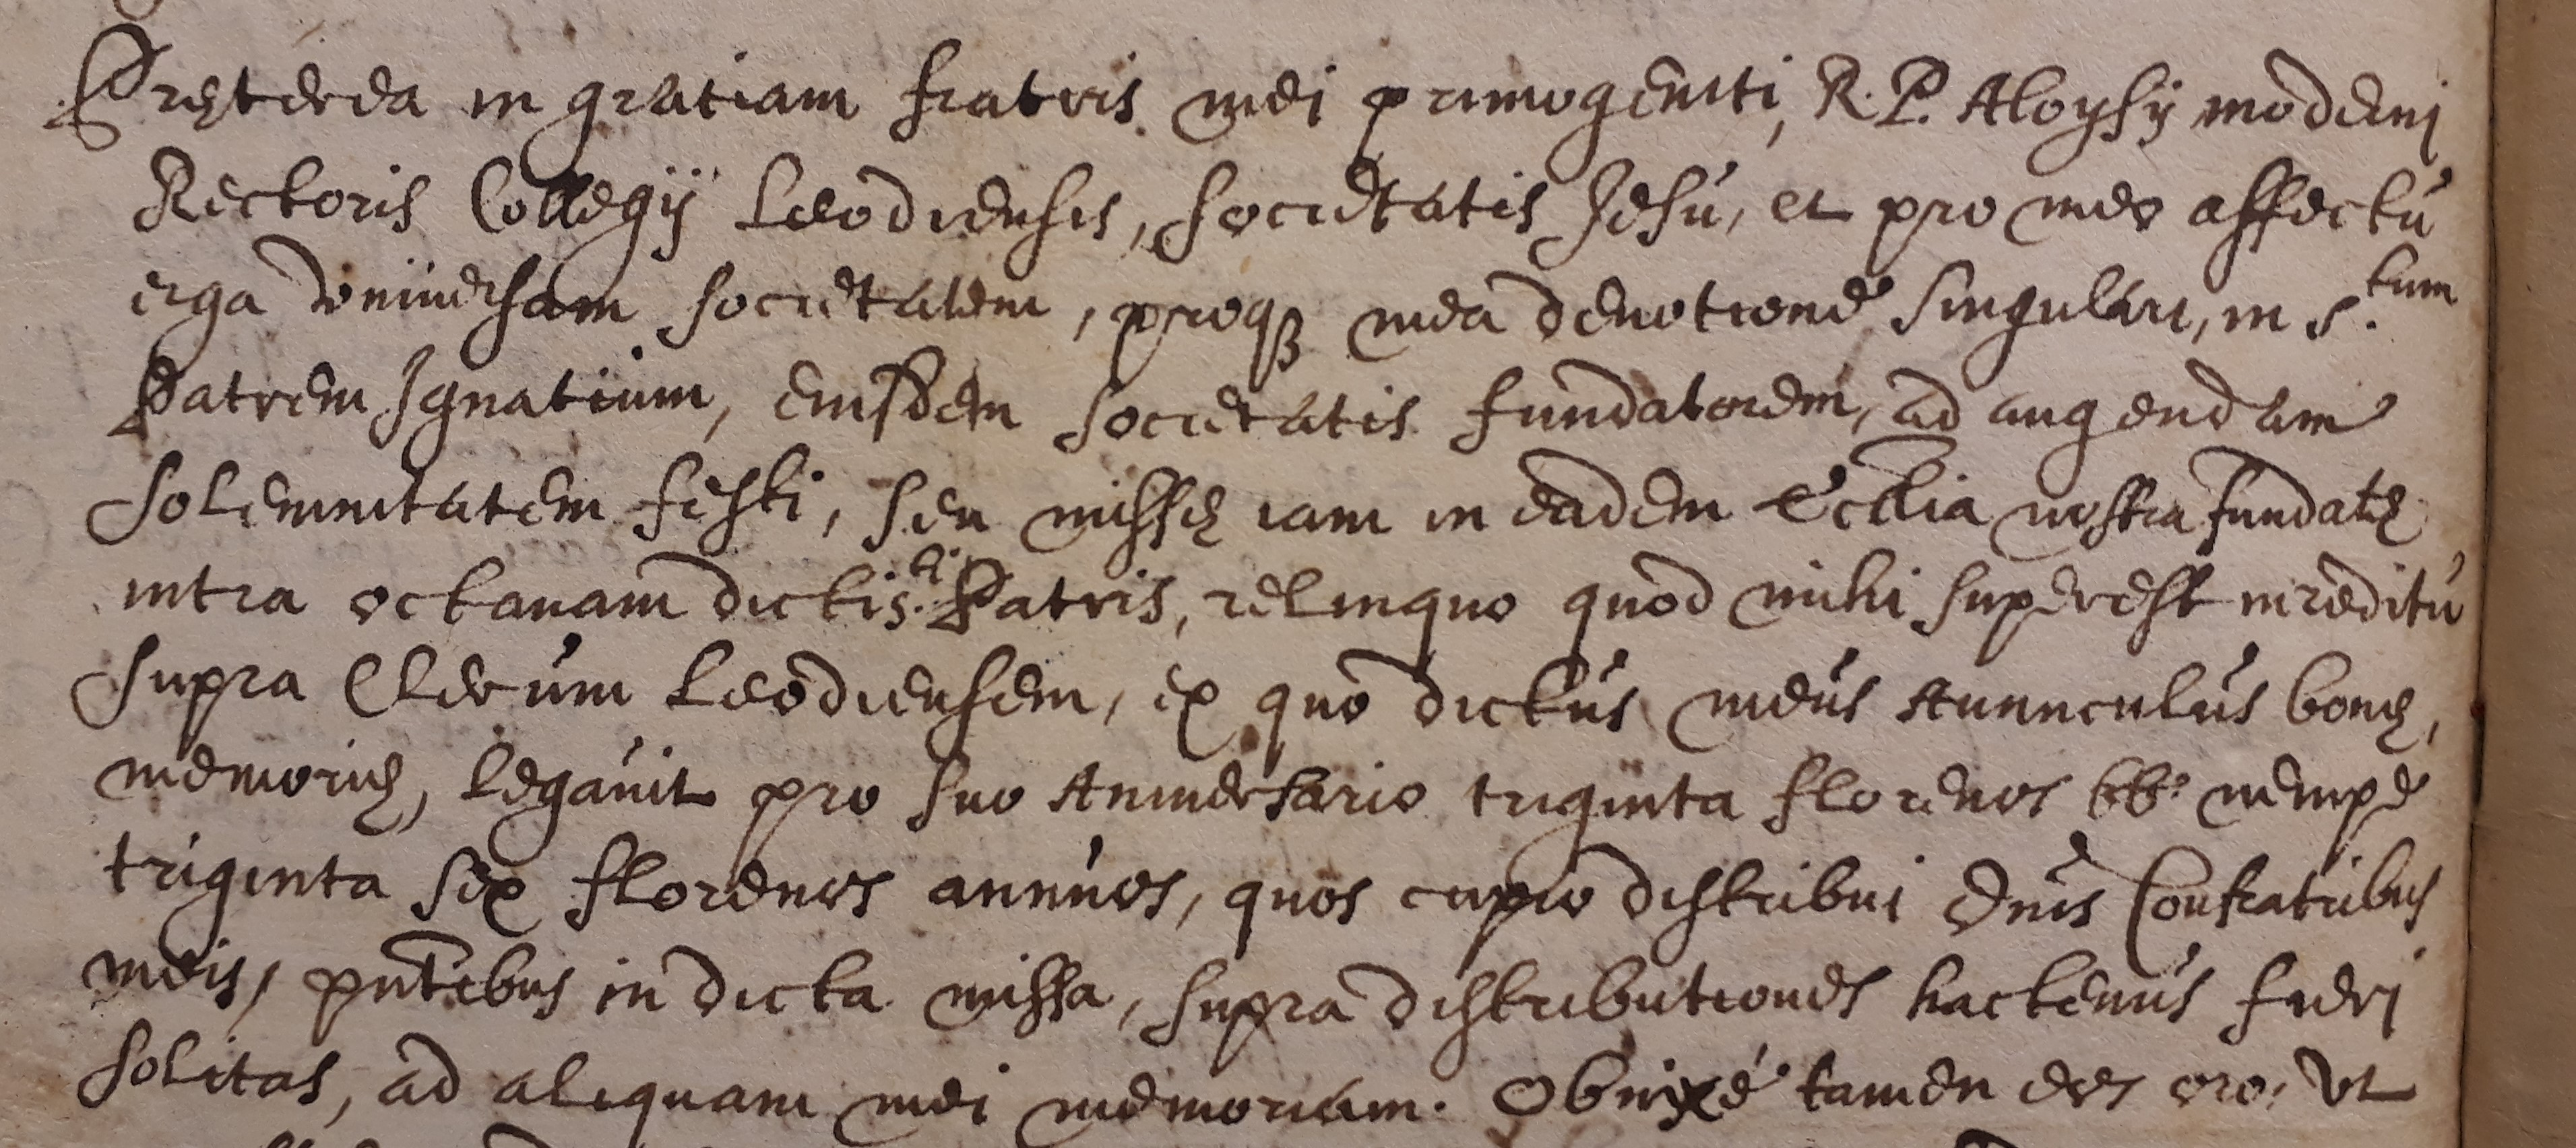 Pręterea in gratiam fratris mei primogeniti, R. P. Aloysij moderni
Rectoris Collegij Leodiensis, societatis Jesú, et pro meo affectú
erga vniúersam societatem, proq₃ mea deuotione singulari, in s.tum
Patrem Ignatiúm, eiusdem societatis fundatorem, ad augendam
solemnitatem festi, seu missę iam in eadem Ecclia nostra fundatę
intra octauam dicti s.ti Patris, relinquo quod mihi superest in reditú
supra Clerúm Leodiensem, ex quo dictús meús Auunculús bonę,
memorię, legauit pro suo Anniuersario triginta florenos bb.s nempe
triginta sex florenos annúos, quos cupio distribui Dnis Confratribus
meis, pntibus in dicta missa, supra distributiones hactenús fieri
solitas, ad aliquam mei memoriam. Obnixé tamen eos oro, vt